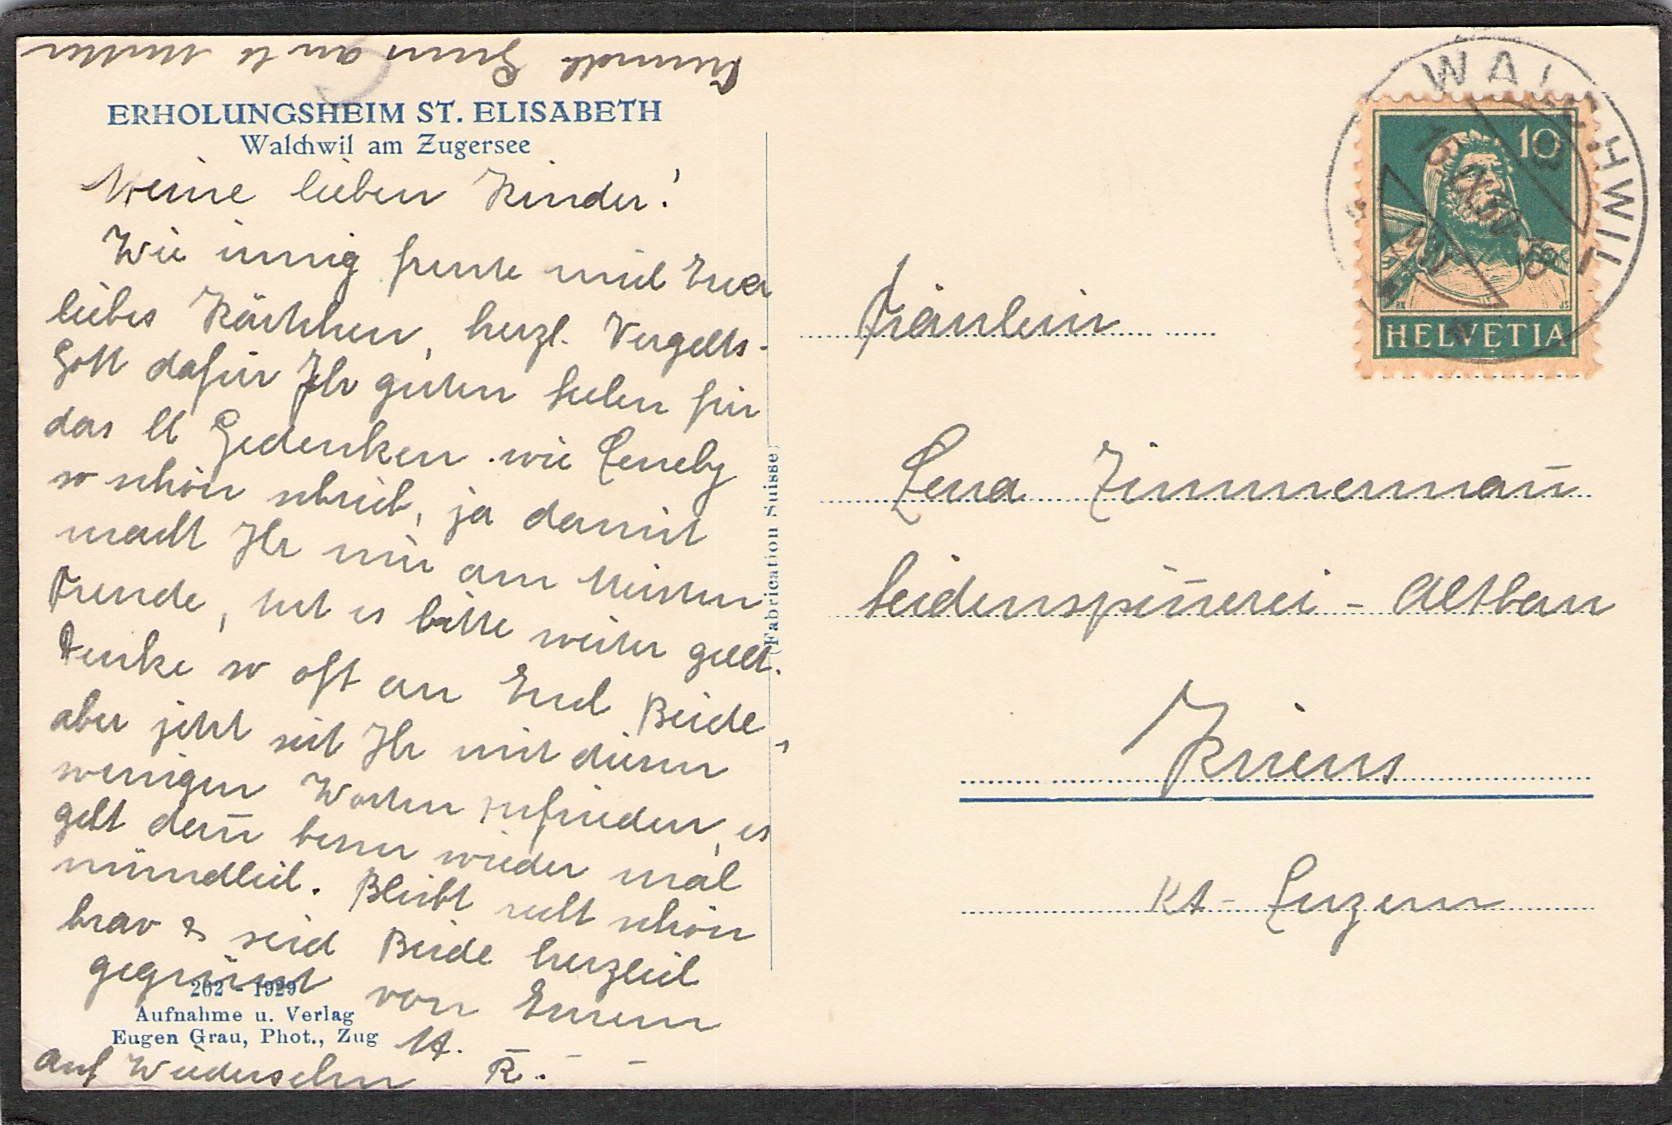 Freundl. Gruss an lb Mutter
ERHOLUNGSHEIM ST. ELISABETH
Walchwil am Zugersee
Meine lieben Kinder!
Wie innig freute mich Euer
liebes Kärtchen, herzl. Vergelts-
Gott dafür Ihr guten Seelen für
das lb Gedenken wie Leneli
so schön schrieb, ja damit
macht Ihr mir am meisten
Freude, tut es bitte weiter gell.
Denke so oft an Euch Beide,
aber jetzt seit Ihr mit diesen
wenigen Worten zufrieden, es
geht dañ besser wieder mal
mündlich. Bleibt recht schön
brav & seid Beide herzlich
gegrüsst von Eurem
auf Wiedersehn R.
262 - 1929
Aufnahme u. Verlag
Eugen Grau, Phot., Zug
Fabrication Suisse
WALCHWIL
10
HELVETIA
Fräulein
Lena Zimmermañ
Seidenspiñerei - Altbau
Kriens
Kt - Luzern